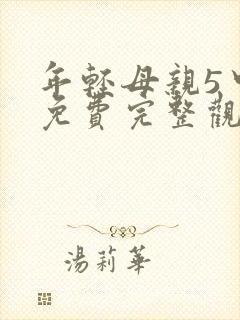 年輕母親5
免費完整觀
湯莉華